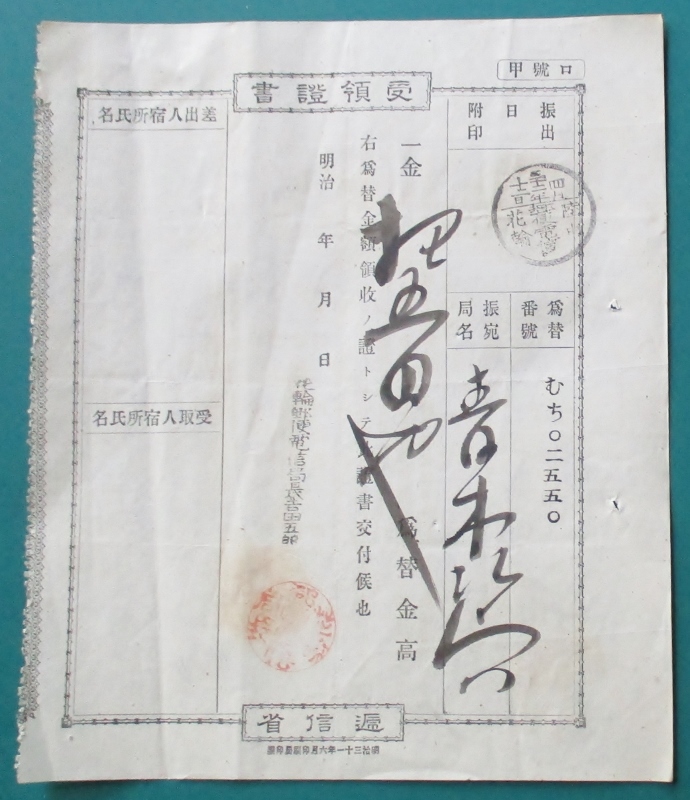 甲號口
書證領受
振出
日
附印
爲替番號
振宛局名
むち〇二五五〇
一金
爲替金高
右爲替金額領收ノ證トシテ此證書交付候也
明治　年　月　日
花輪郵便電信局長吉田五郎
名氏所宿人出差
名氏所宿人取受
省信遞
明治三十一年六月印刷局印刷